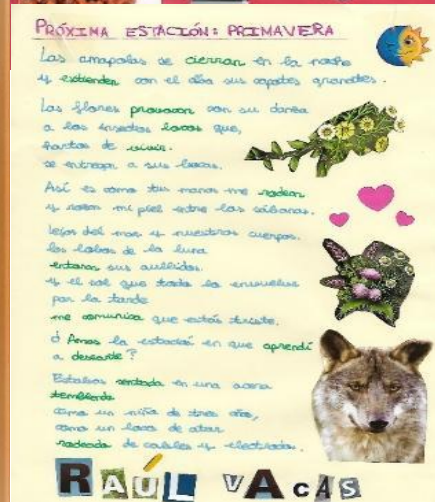 PRÓXIMA ESTACIÓN: PRIMAVERA
Las amapolas se cierran en la noche
y extienden con el día sus capotes granates.
Las flores provocan con su danza
a los insectos locos que,
hartos de vivir,
se entregan a sus bocas.
Así es como tus manos me rodean
y rozan mi piel entre las sábanas.
Lejos del mar y nuestros cuerpos,
los lobos de la luna
entonan sus aullidos.
y el sol que todo lo envuelve
por la tarde
me comunica que estás triste.
¿Amas la estación en que aprendí
a desearte?
Estabas sentada en una acera
temblando
como un niño de tres años,
como un lazo de atar
rodeada de cables y electrodos.
RAÚL VACAS